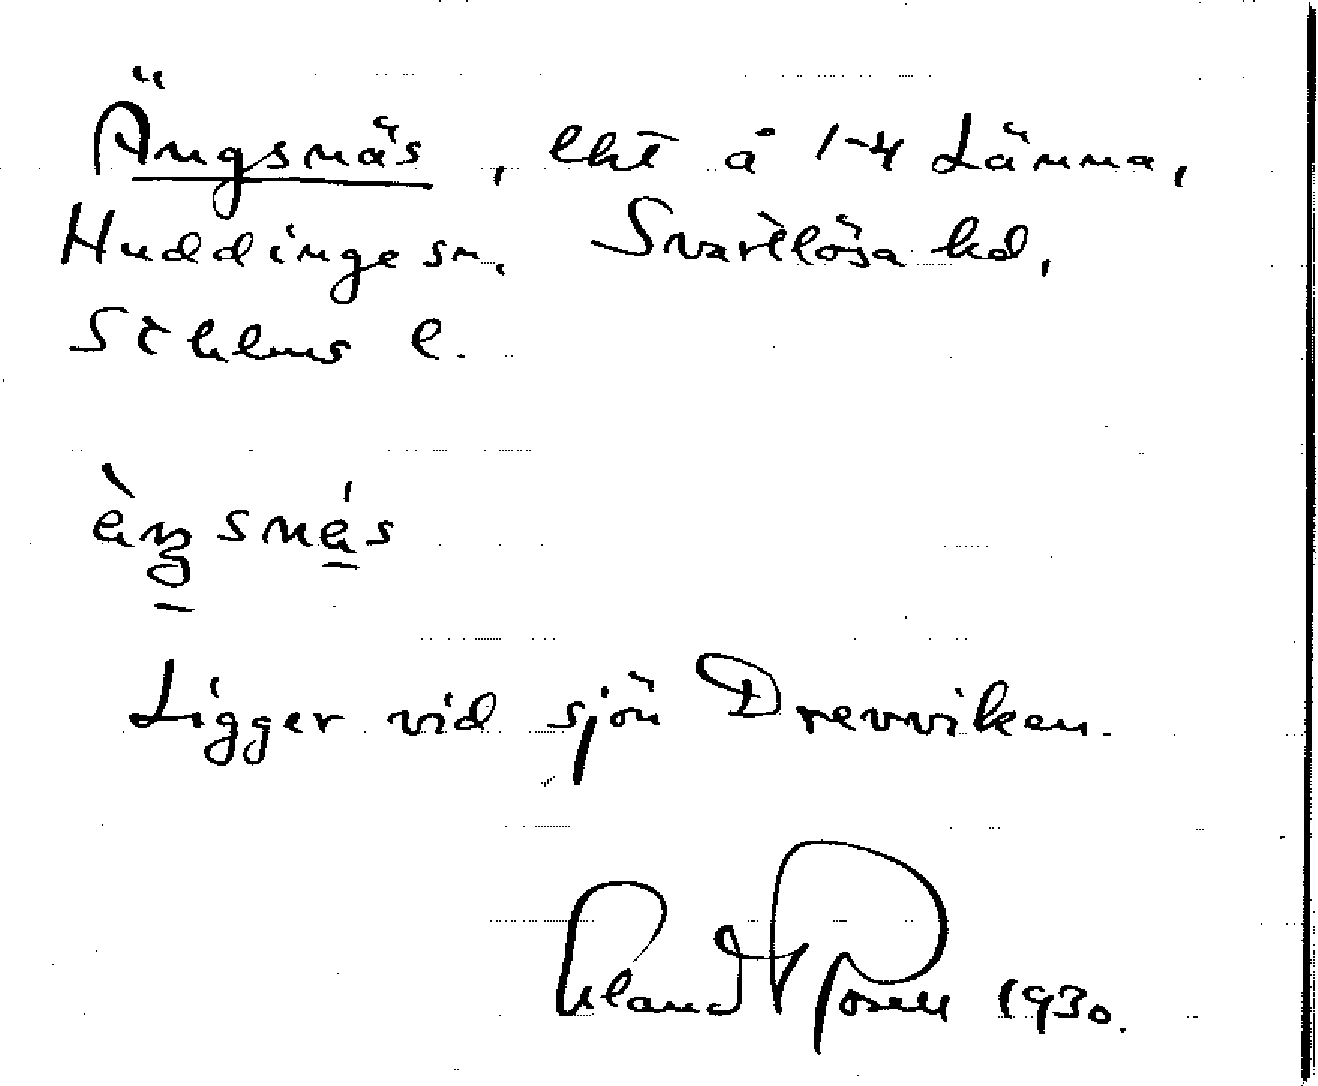 Ängsnäs, lht å 1-4 Länna,
Huddinge sn, Svartlösa hd,
Sthlms l.
ä̀ŋsnä́s
Ligger vid sjön Drevviken.
1930.